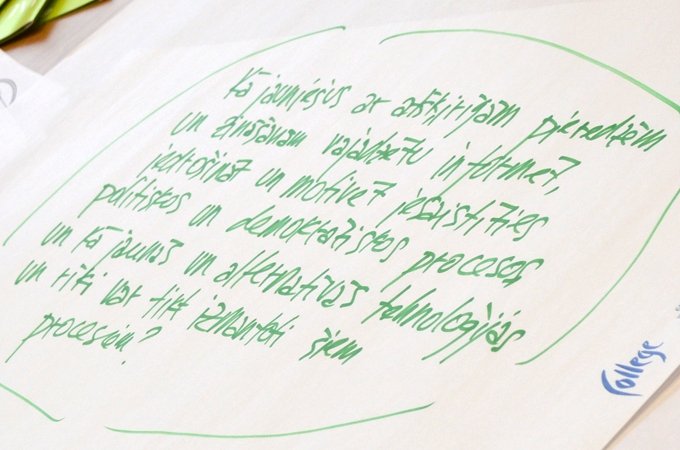 Kā jauniešus ar atšķirīgām pieredzēm
un zināšanām vajadzētu informēt,
iedrošināt un motivēt iesaistīties
politiskos un demokrātiskos procesos
un kā jaunās un alternatīvās tehnoloģijas
un rīki var tikt izmantoti šiem
procesiem?
College